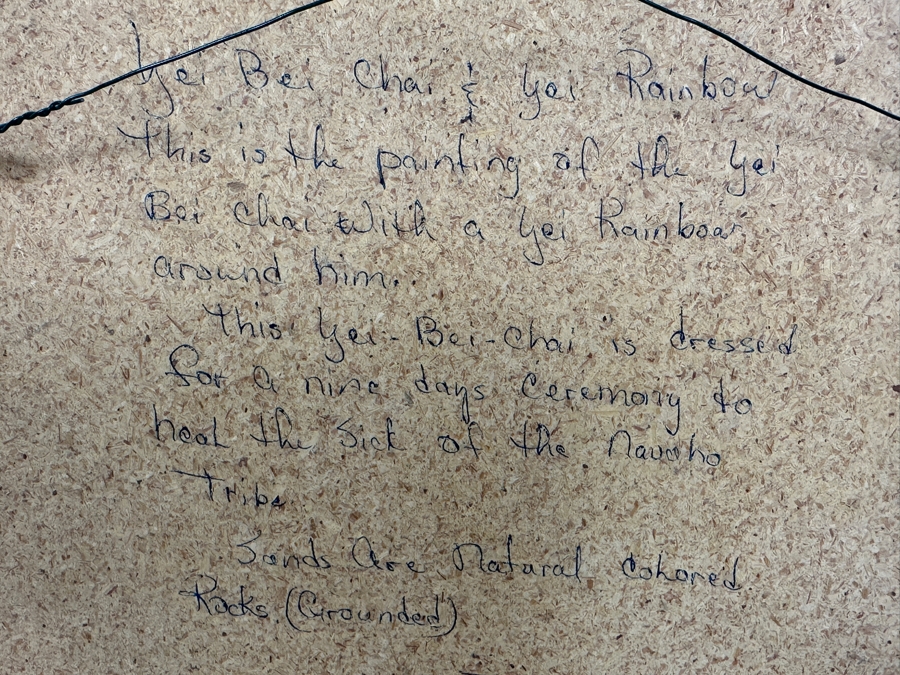 Yei Bei Chai & Yei Rainbow
This is the painting of the Yei
Bei Chai with a Yei Rainbow
around him.
This Yei-Bei-Chai is dressed
for a nine days Ceremony to
heal the Sick of the Navaho
Tribe
Sands Are Natural colored
Rocks (Grounded)